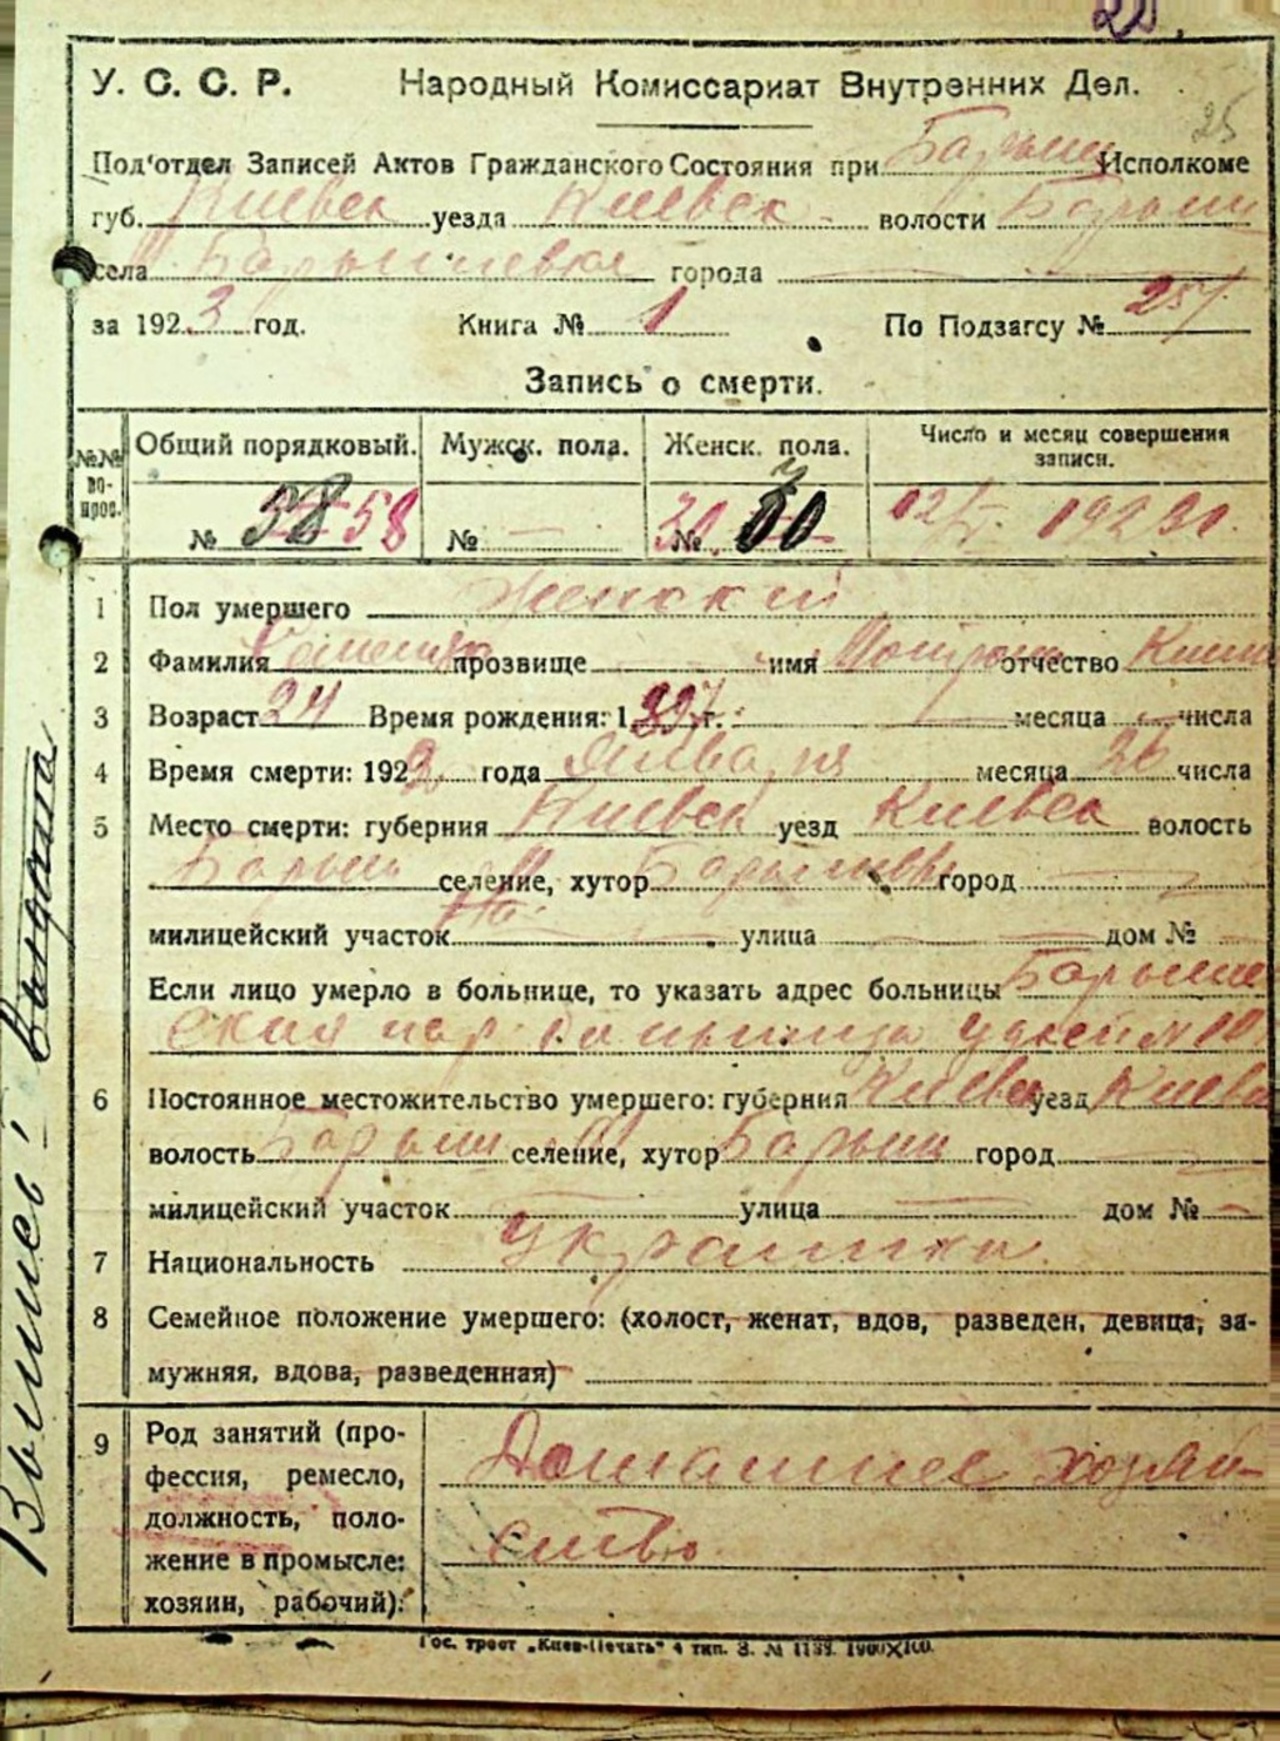 У. С. С. Р. Народный Комиссариат Внутренних Дел.
25
Под'отдел Записей Актов Гражданского Состояния при Барыш Исполкоме
губ. Киевск уезда Киевск волости Барыш
села М Барышевка города
за 1923 год. Книга № 1 По Подзагсу №
Запись о смерти.
№№ во-прос. Общий порядковый. Мужск. пола. Женск. пола. Число и месяц совершения записи.
№ 38 58 № — №
1 Пол умершего Женский
2 Фамилия прозвище имя Мотрона отчество
3 Возраст 24 Время рождения: 1 г. месяца числа
4 Время смерти: 192 года Января месяца 26 числа
5 Место смерти: губерния Киевск уезд Киевск волость
Барыш селение, хутор М Барышевка город
милицейский участок улица дом №
Если лицо умерло в больнице, то указать адрес больницы Барыше
ская больница
6 Постоянное местожительство умершего: губерния Киевск уезд Киевс
волость Барыш селение, хутор М Барыш город
милицейский участок улица дом №
7 Национальность Украинка
8 Семейное положение умершего: (холост, женат, вдов, разведен, девица, за-
мужняя, вдова, разведенная)
9 Род занятий (про-
фессия, ремесло,
должность, поло-
жение в промысле:
хозяин, рабочий):
Домашнее хозяй-
ство
Гос. трест „Киев-Печать" 4 тип. З. №
Выпись выдана